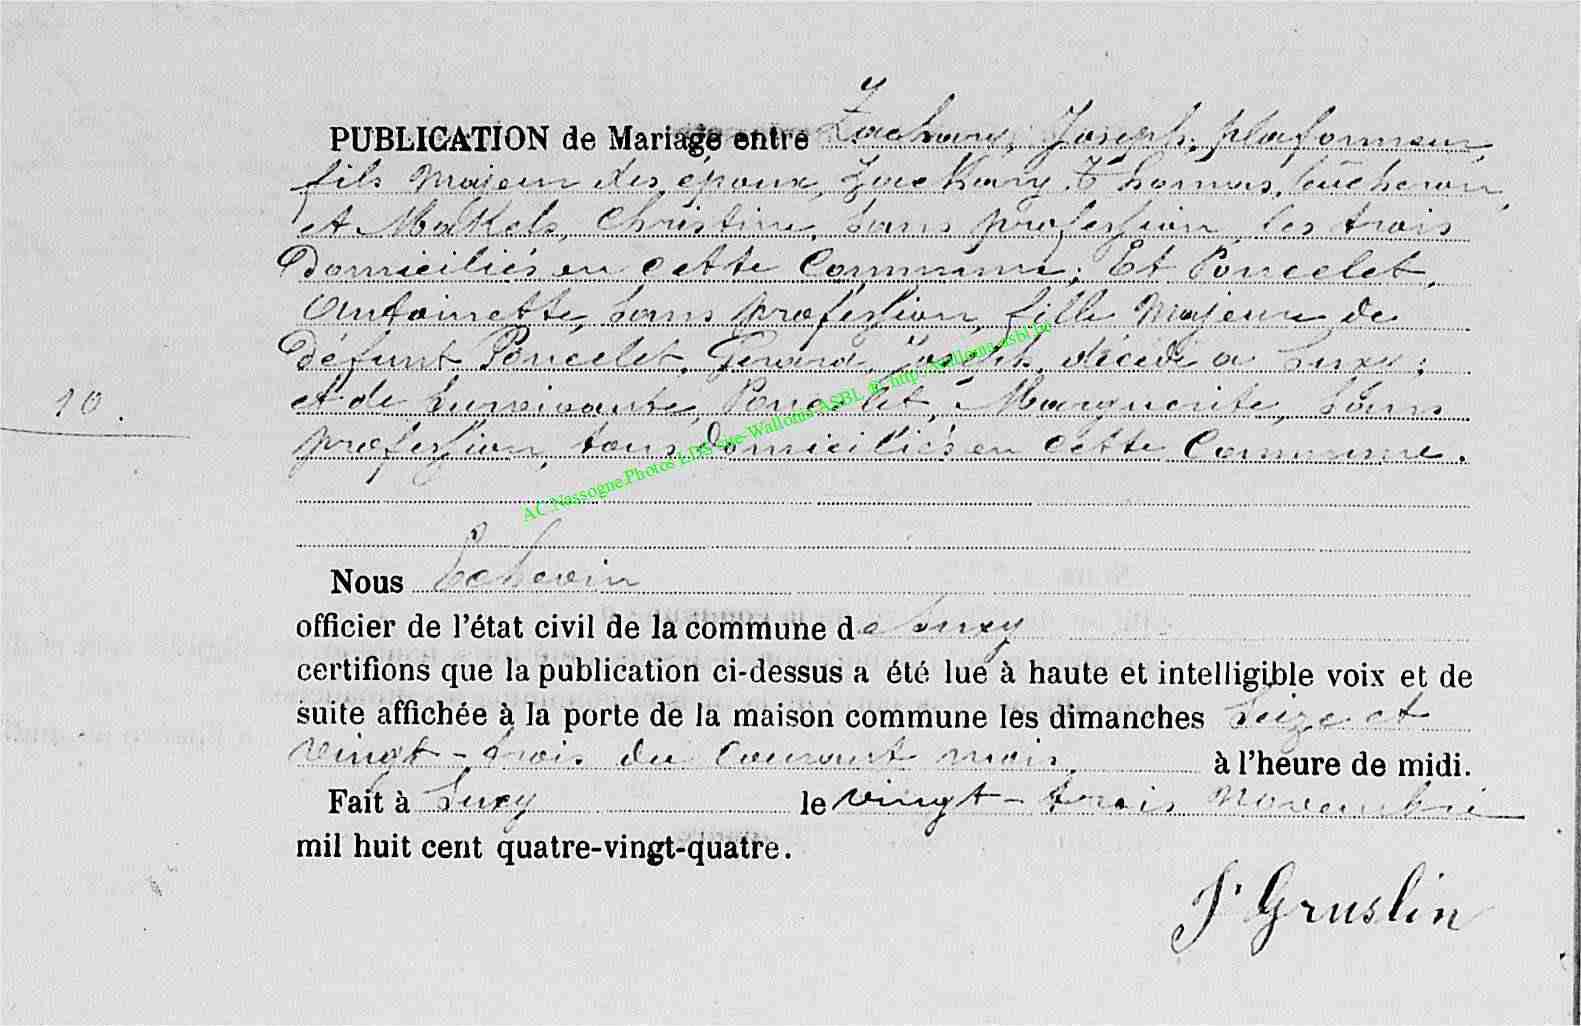 PUBLICATION de Mariage entre Zachary, Joseph, plafonneur,
fils majeur des époux, Zachary, Thomas, bûcheron,
et Markels, Christine, sans profession, les trois
Domiciliés en cette Commune; Et Poncelet,
Antoinette, sans profession, fille majeure de
Défunt Poncelet, Gérard, Joseph, décédé à Suxy;
10.
et de survivante, Poncelet, Marguerite, sans
profession, tous Domiciliés en cette Commune.
AC.Nassogne.Photos LDs site Wallonia ASBL & http://wallonia-asbl.be
Nous Echevin
officier de l'état civil de la commune de Suxy
certifions que la publication ci-dessus a été lue à haute et intelligible voix et de
suite affichée à la porte de la maison commune les dimanches seize et
vingt-trois du courant mois, à l'heure de midi.
Fait à Suxy le vingt-trois Novembre
mil huit cent quatre-vingt-quatre.
J. Gruslin